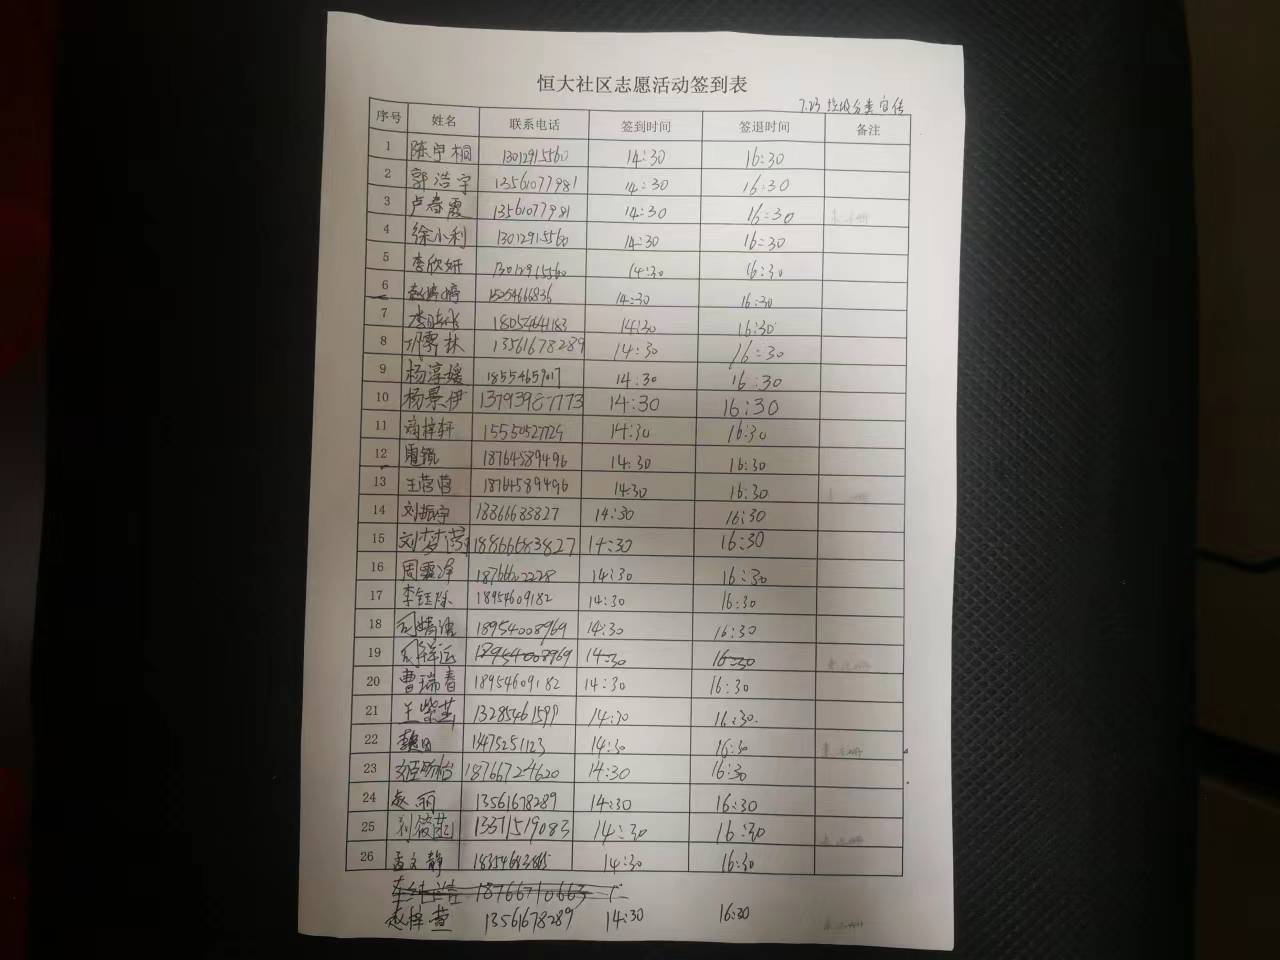 恒大社区志愿活动签到表
7.23 垃圾分类宣传
序号 姓名 联系电话 签到时间 签退时间 备注
1 陈宇桐 13012915560 14:30 16:30
2 郭浩宇 13561077981 14:30 16:30
3 卢春霞 13561077981 14:30 16:30
4 徐小利 13012915560 14:30 16:30
5 李欣妍 13012915560 14:30 16:30
6 15254666836 14:30 16:30
7 18054641183 14:30 16:30
8 13561678289 14:30 16:30
9 杨淳媛 18554659017 14:30 16:30
10 杨景伊 14:30 16:30
11 15550527729 14:30 16:30
12 18764589496 14:30 16:30
13 王营营 18764589496 14:30 16:30
14 刘振宇 18866683827 14:30 16:30
15 18866683827 14:30 16:30
16 周 14:30 16:30
17 18954609182 14:30 16:30
18 18954008969 14:30 16:30
19 18954008969 14:30 16:30
20 曹瑞春 18954609182 14:30 16:30
21 王紫 14:30 16:30
22 13475251123 14:30 16:30
23 18766724620 14:30 16:30
24 赵丽 13561678289 14:30 16:30
25 13371519083 14:30 16:30
26 孟文静 14:30 16:30
18766710663
赵梓萱 13561678289 14:30 16:30